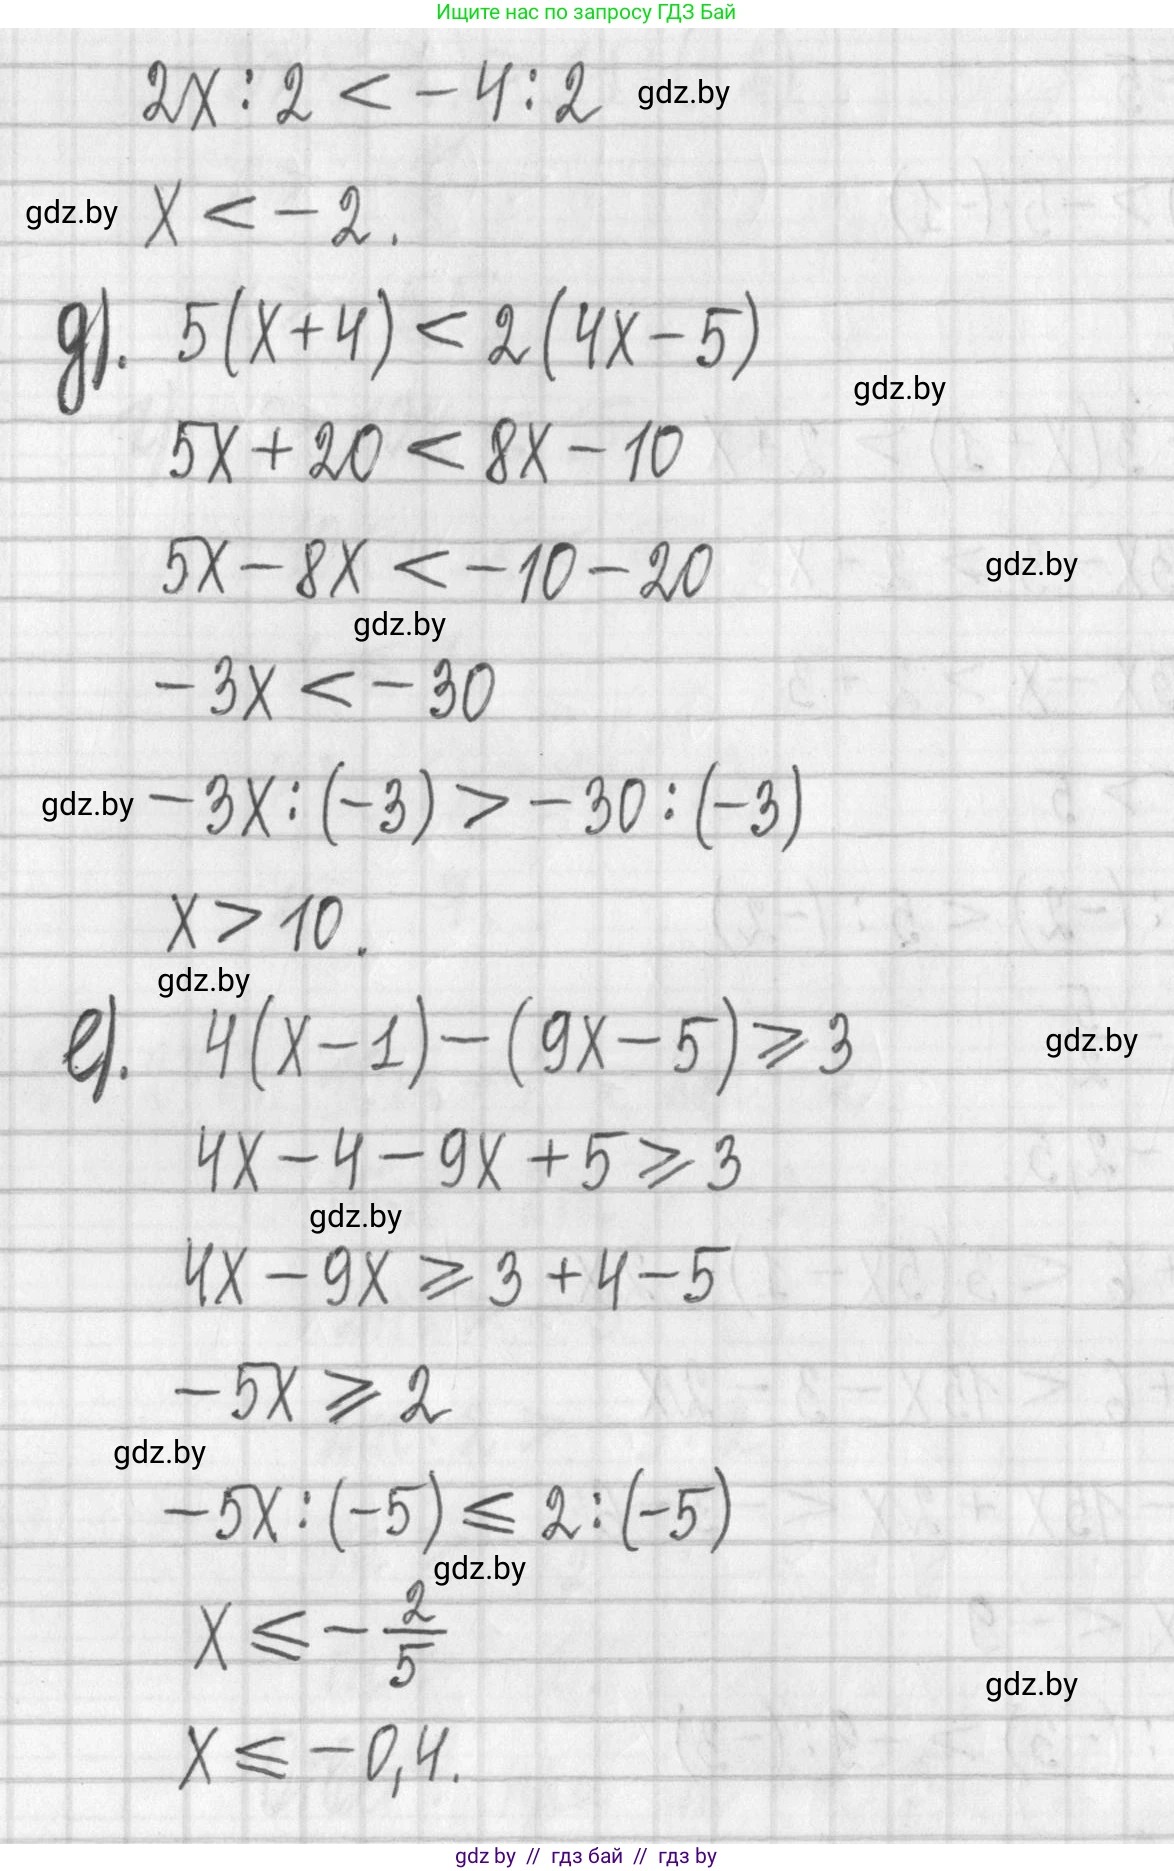 Ищите нас по запросу ГДЗ Бай
2x : 2 < - 4 : 2 gdz.by
gdz.by x < - 2.
д). 5(x+4) < 2(4x-5)
gdz.by
5x + 20 < 8x - 10
5x - 8x < -10 - 20 gdz.by
gdz.by
-3x < -30
gdz.by -3x : (-3) > -30 : (-3)
x > 10.
gdz.by
е). 4(x-1) - (9x-5) ⩾ 3 gdz.by
4x - 4 - 9x + 5 ⩾ 3
gdz.by
4x - 9x ⩾ 3 + 4 - 5
-5x ⩾ 2
gdz.by
-5x : (-5) ⩽ 2 : (-5)
gdz.by
x ⩽ - 2/5
gdz.by
x ⩽ -0,4.
gdz by // гдз бай // гдз by